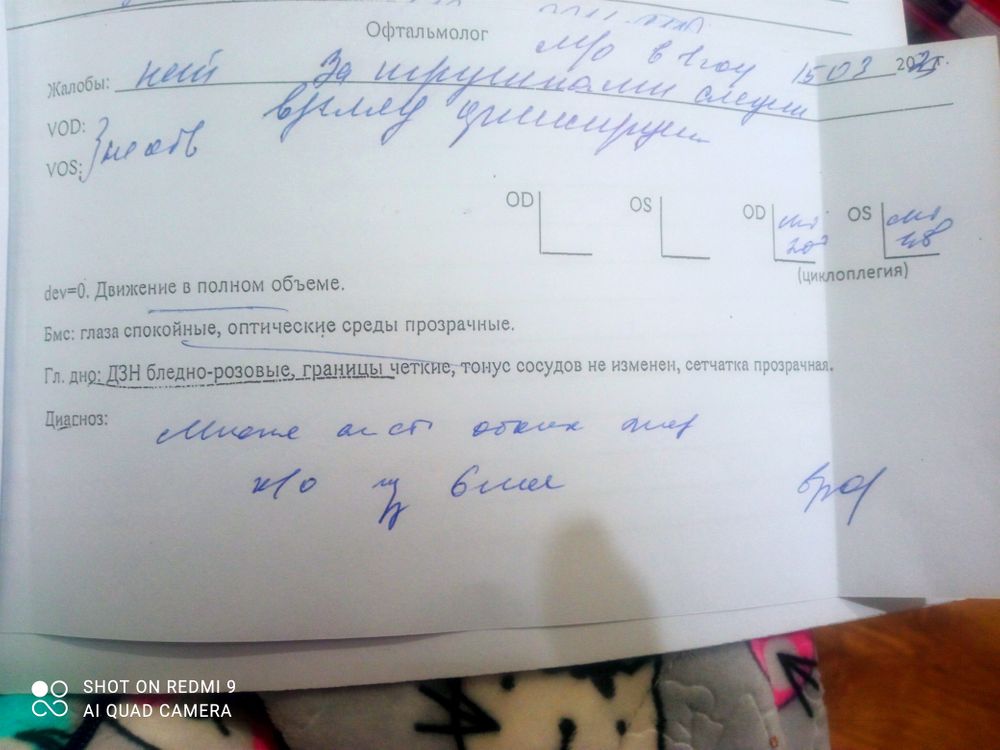 Офтальмолог
м/о в 1 год 15 03 202 г.
Жалобы: нет За игрушками следит
VOD: взгляд фиксирует
VOS:
OD OS OD OS
(циклоплегия)
dev=0. Движение в полном объеме.
Бмс: глаза спокойные, оптические среды прозрачные.
Гл. дно: ДЗН бледно-розовые, границы четкие, тонус сосудов не изменен, сетчатка прозрачная.
Диагноз:
ст обоих
к/о 6 мес
SHOT ON REDMI 9
AI QUAD CAMERA